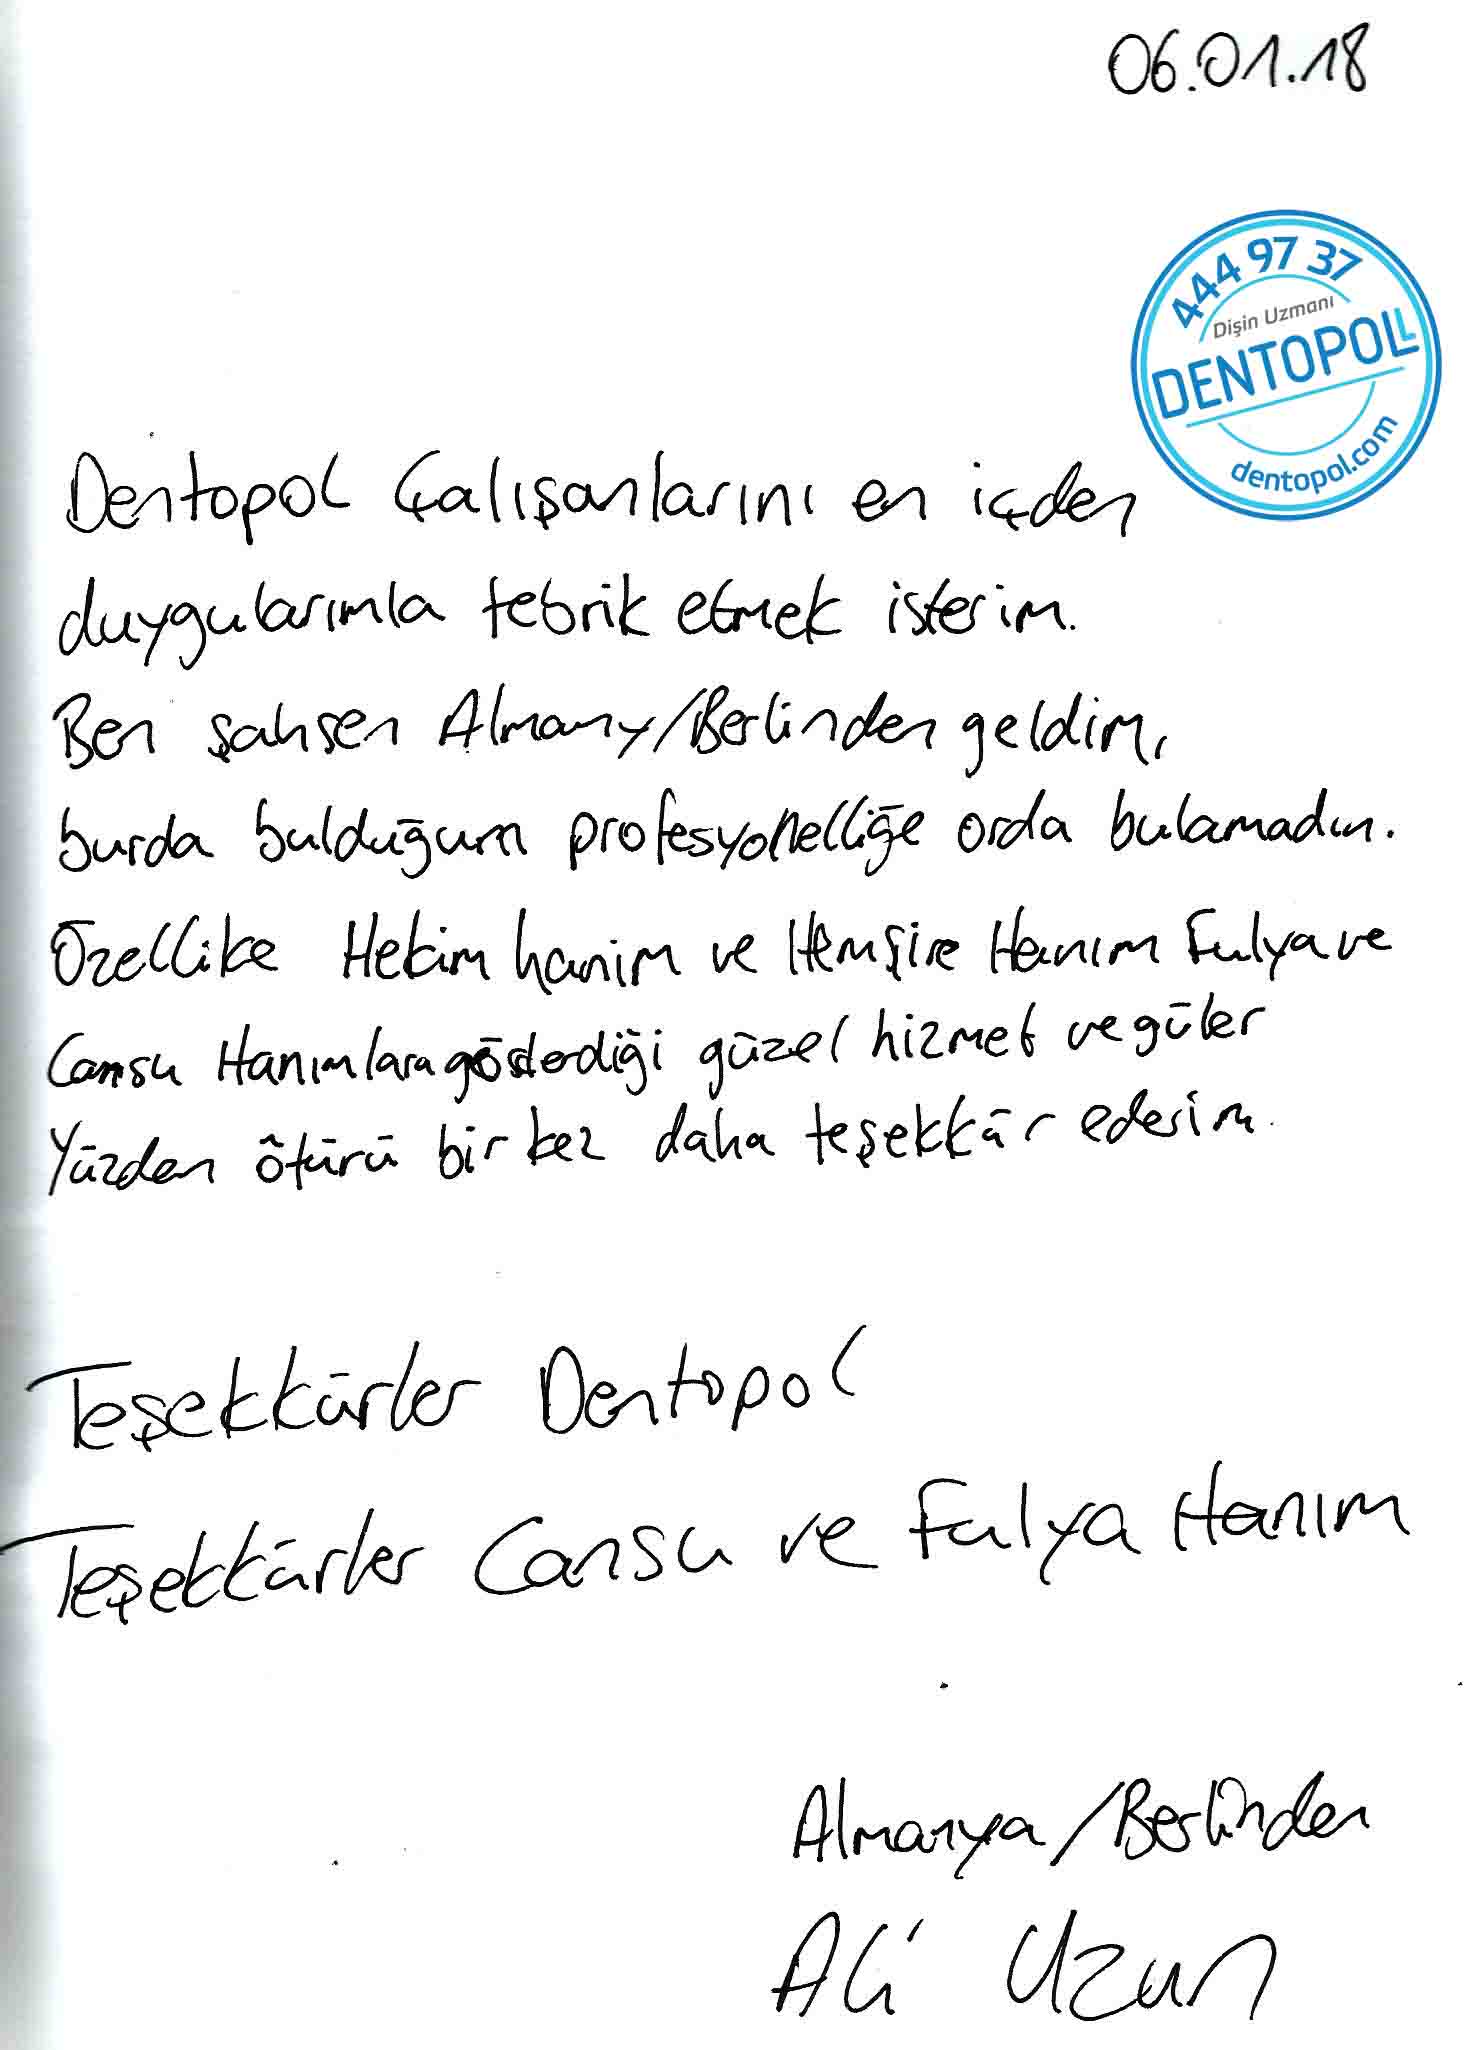 06.01.18
444 97 37
Dişin Uzmanı
DENTOPOL
dentopol.com
Dentopol Çalışanlarını en içden
duygularımla tebrik etmek isterim.
Ben şahsen Almany/Berlinden geldim,
burda bulduğum profesyonelliğe orda bulamadım.
Özellike Hekim hanim ve Hemşire Hanım Fulya ve
Cansu Hanımlara gösterdiği güzel hizmet ve güler
Yüzden ötürü bir kez daha teşekkür ederim.
Teşekkürler Dentopol
Teşekkürler Cansu ve Fulya Hanım
Almanya/Berlinden
Ali Uzun